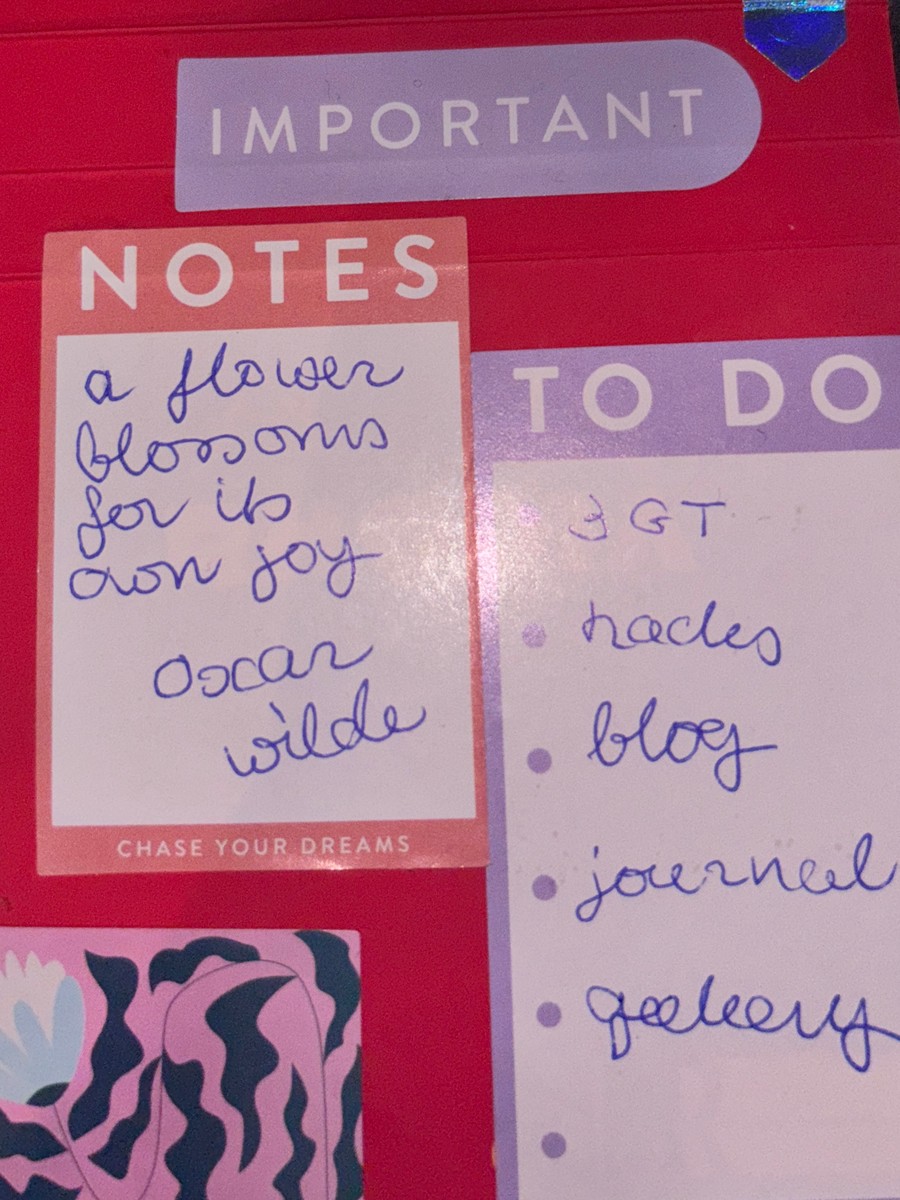 IMPORTANT
NOTES
a flower
blossoms
for its
own joy
oscar
wilde
CHASE YOUR DREAMS
TO DO
3 GT
hacks
blog
journal